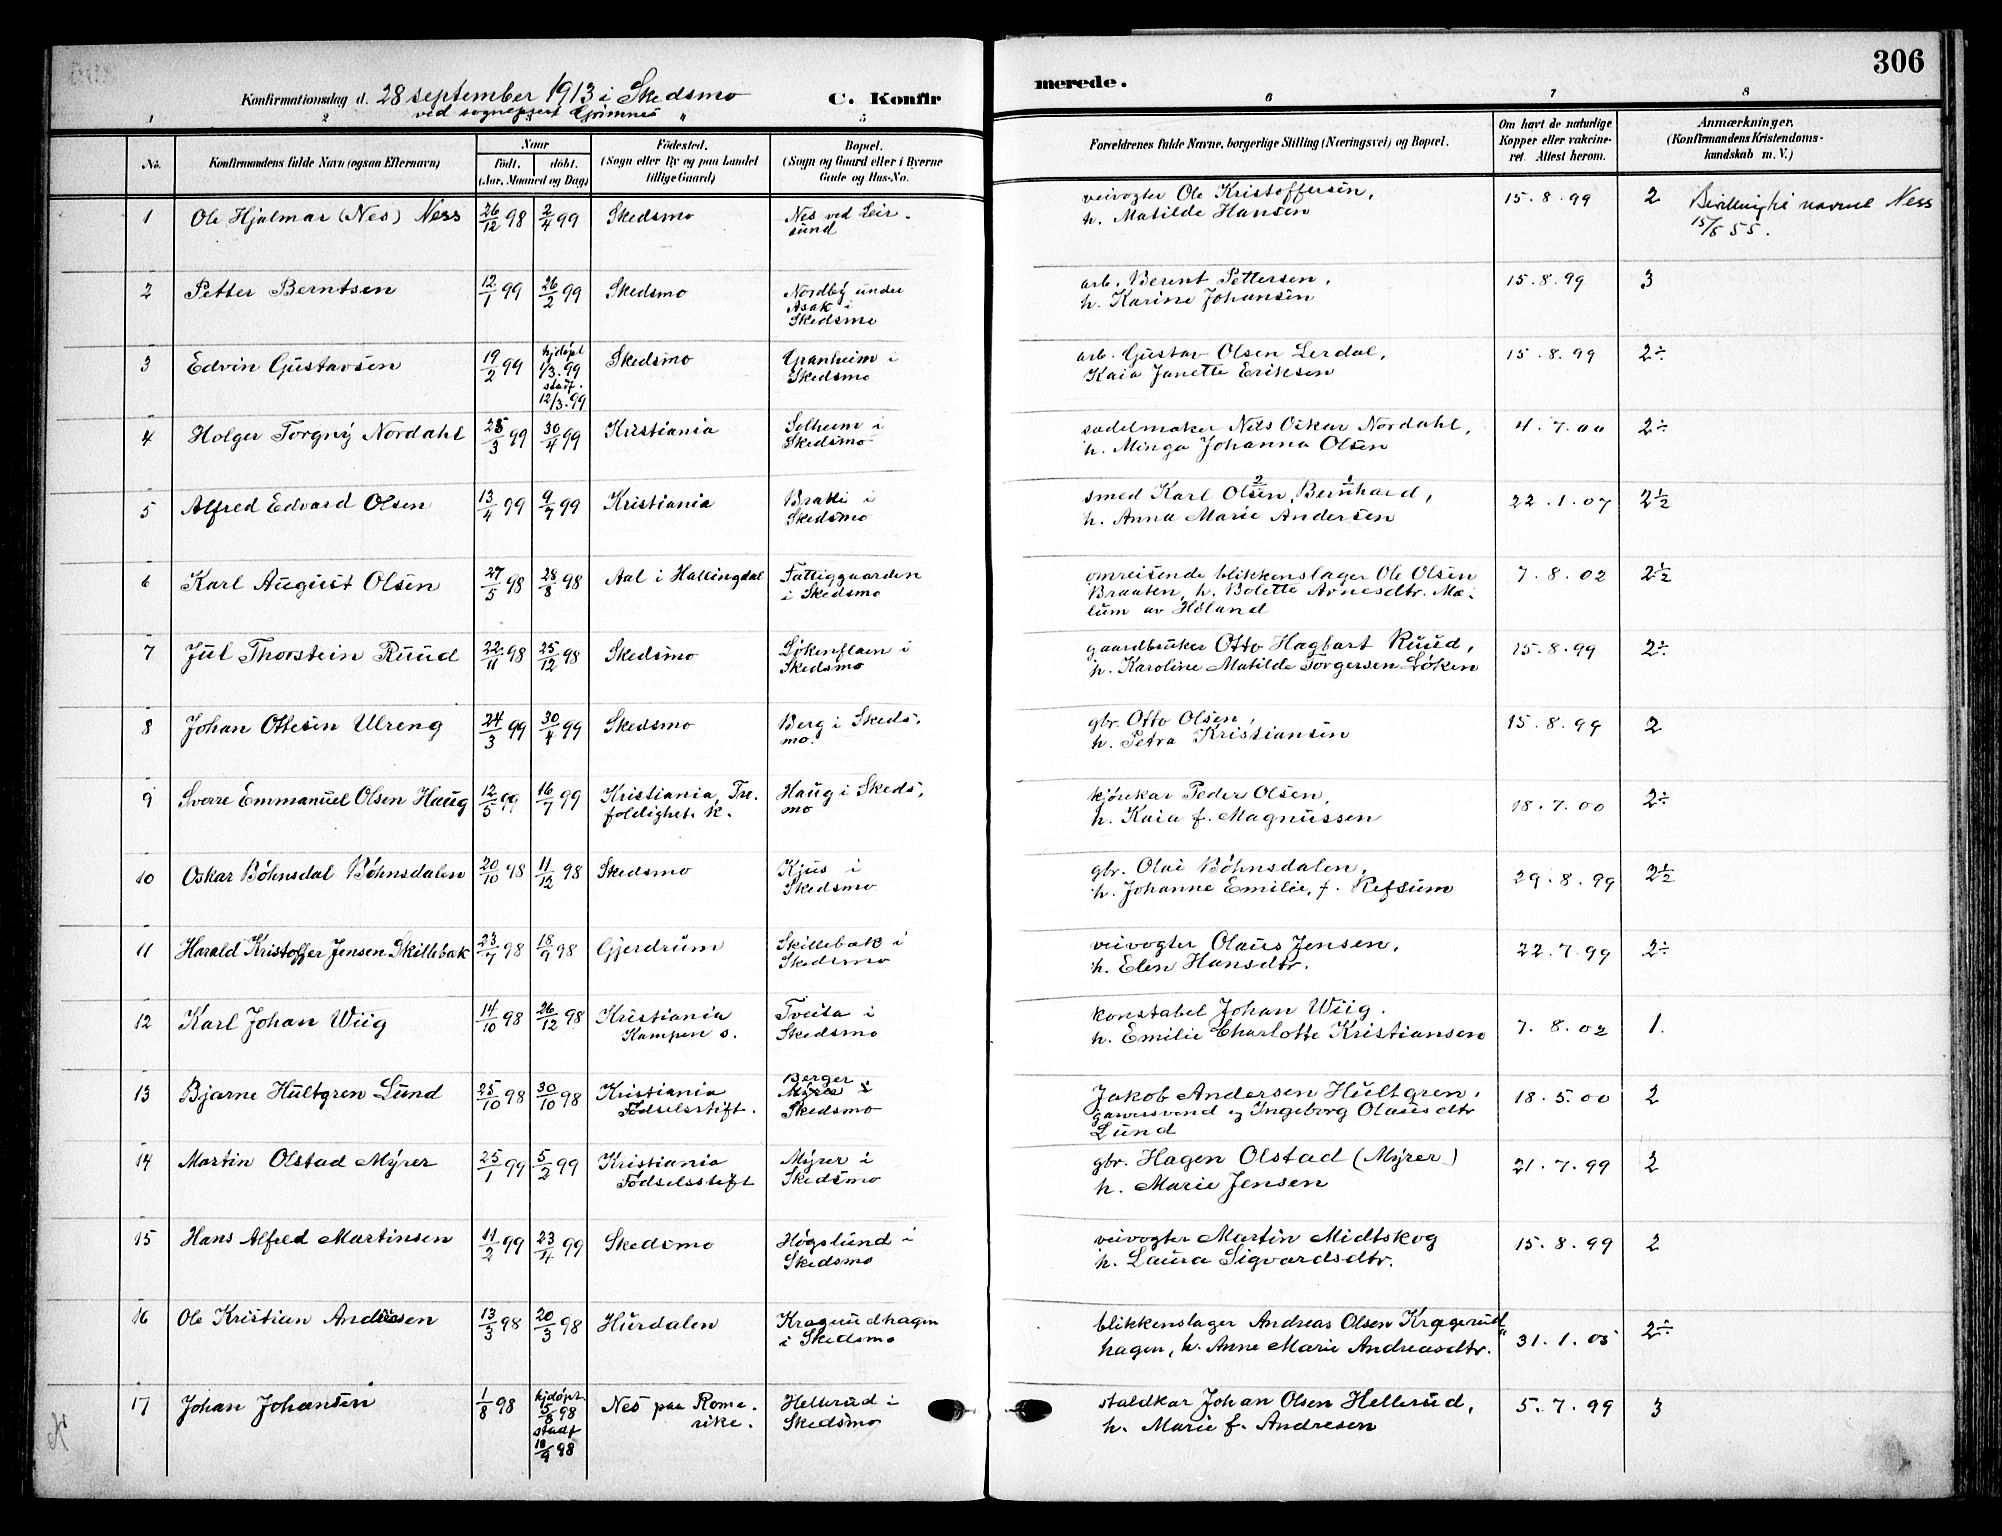 306
Konfirmationsdag d. 28 september 1913 i Skedsmo C. Konfir merede.
ved sogneprest Grimnes
1 2 3 4 5 6 7 8
No. Konfirmandens fulde Navn (ogsaa Efternavn) Naar født. døbt. (Aar, Maaned og Dag) Fødested. (Sogn eller By og paa Landet tillige Gaard) Bopæl. (Sogn og Gaard eller i Byerne Gade og Hus-No. Forældrenes fulde Navne, borgerlige Stilling (Næringsvei) og Bopæl. Om havt de naturlige Kopper eller vakcineret. Attest herom. Anmærkninger. (Konfirmandens Kristendomskundskab m. V.)
1 Ole Hjalmar (Nes) Ness 26/12 98 2/4 99 Skedsmo Nes ved Leirsund veivogter Ole Kristoffersen, h. Matilde Hansen 15.8.99 2 Bevilling til navnet Ness 15/6 55.
2 Petter Berntsen 12/1 99 26/2 99 Skedsmo Nordby under Asak i Skedsmo arb. Berent Pettersen, h. Karine Johansen 15.8.99 3
3 Edvin Gustavsen 19/2 99 hjdøpt 1/3.99 stadf. 12/3.99 Skedsmo Granheim i Skedsmo arb. Gustav Olsen Lerdal, Kaia Janette Eriksen 15.8.99 2÷
4 Holger Torgny Nordahl 28/3 99 30/4 99 Kristiania Solheim i Skedsmo sadelmaker Nils Oskar Nordahl, h. Minga Johanna Olsen 4.7.00 2÷
5 Alfred Edvard Olsen 13/4 99 9/7 99 Kristiania Brakki i Skedsmo smed Karl Olsen Bernhard, h. Anna Marie Andersen 22.1.07 2½
6 Karl August Olsen 27/5 98 28/8 98 Aal i Hallingdal Fattiggaarden i Skedsmo omreisende blikkenslager Ole Olsen Braaten, h. Bolette Arnesdtr. Mælum av Høland 7.8.02 2½
7 Jul Thorstein Ruud 22/11 98 25/12 98 Skedsmo Løkenflaen i Skedsmo gaardbruker Otto Hagbart Ruud, h. Karoline Matilde Torgersen Løken 15.8.99 2÷
8 Johan Ottesen Ulreng 24/3 99 30/4 99 Skedsmo Berg i Skedsmo. gbr. Otto Olsen, h. Petra Kristiansen 15.8.99 2
9 Sverre Emmanuel Olsen Haug 12/5 99 16/7 99 Kristiania, Trefoldighet. k. Haug i Skedsmo kjørekar Peder Olsen, h. Kaia f. Magnussen 18.7.00 2÷
10 Oskar Bøhnsdal Bøhnsdalen 20/10 98 11/12 98 Skedsmo Kjus i Skedsmo gbr. Olai Bøhnsdalen, h. Johanne Emilie, f. Refsum 29.8.99 2½
11 Harald Kristoffer Jensen Skillebæk 23/7 98 18/9 98 Gjerdrum Skillebæk i Skedsmo veivogter Olaus Jensen, h. Elen Hansdtr. 22.7.99 2÷
12 Karl Johan Wiig 14/10 98 26/12 98 Kristiania Kampen s. Tveita i Skedsmo konstabel Johan Wiig. h. Emilie Charlotte Kristiansen 7.8.02 1.
13 Bjarne Hultgren Lund 25/10 98 30/10 98 Kristiania Fødselsstift. Berger Myrer i Skedsmo Jakob Andersen Hultgren, garversvend og Ingeborg Olausdtr Lund 18.5.00 2
14 Martin Olstad Myrer 25/1 99 5/2 99 Kristiania Fødselsstift Myrer i Skedsmo gbr. Hagen Olstad (Myrer) h. Marie Jensen 21.7.99 2
15 Hans Alfred Martinsen 11/2 99 23/4 99 Skedsmo Høgslund i Skedsmo veivogter Martin Midtskog h. Laura Sigvardsdtr. 15.8.99 2
16 Ole Kristian Andresen 13/3 98 20/3 98 Hurdalen Kragerudhagen i Skedsmo blikkenslager Andreas Olsen Kragerudhagen, h. Anne Marie Andreasdtr. 31.1.05 2÷
17 Johan Johansen 1/8 98 hjdøpt 5/8 98 stadf 18/9 98 Nes paa Romerike. Hellerud i Skedsmo staldkar Johan Olsen Hellerud, h. Marie f. Andresen 5.7.99 3